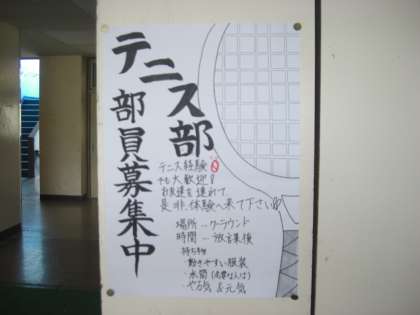 テニス部
部員募集中
テニス経験0
でも大歓迎!
お友達を連れて
是非、体験へ来て下さい!!
場所…グラウンド
時間…放課後
持ち物
・動きやすい服装
・水筒
・やる気&元気